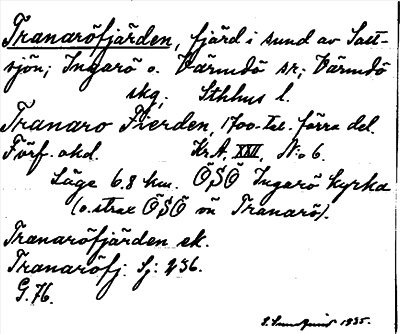 Tranaröfjärden, fjärd i sund av Salt-
sjön; Ingarö o. Värmdö sr; Värmdö
skg; Sthlms l.
Tranaro Fierden, 1700-tal. förra del.
Förf. okd. Kr.A. XXVI, N:o 6.
Läge 6.8 km. ÖSÖ Ingarö kyrka
(o. strax ÖSÖ om Tranarö).
Tranaröfjärden ek.
Tranaröfj. Sj: 236.
G. 76.
1935.